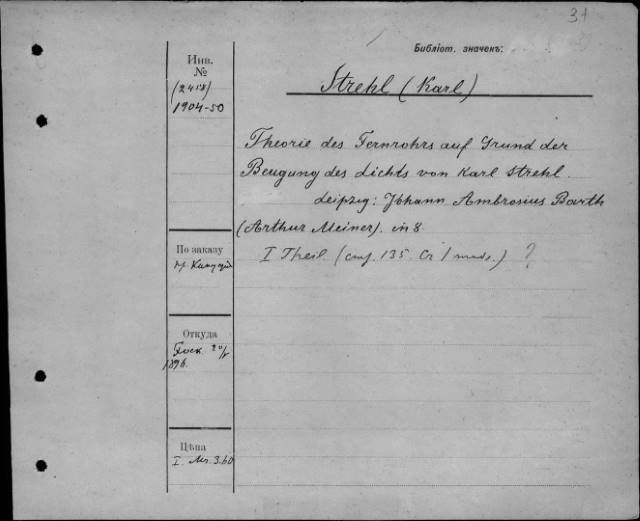 31
Библіот. значенъ:
Инв.
№
(2458)
1904-50
Strehl (Karl)
Theorie des Fernrohrs auf Grund der
Beugung des Lichts von Karl Strehl.
Leipzig: Johann Ambrosius Barth
(Arthur Meiner). in 8.
I Theil. (стр. 135 Сг 1 табл.) ?
По заказу
Откуда
1896.
Цѣна
I. Mr. 3.60